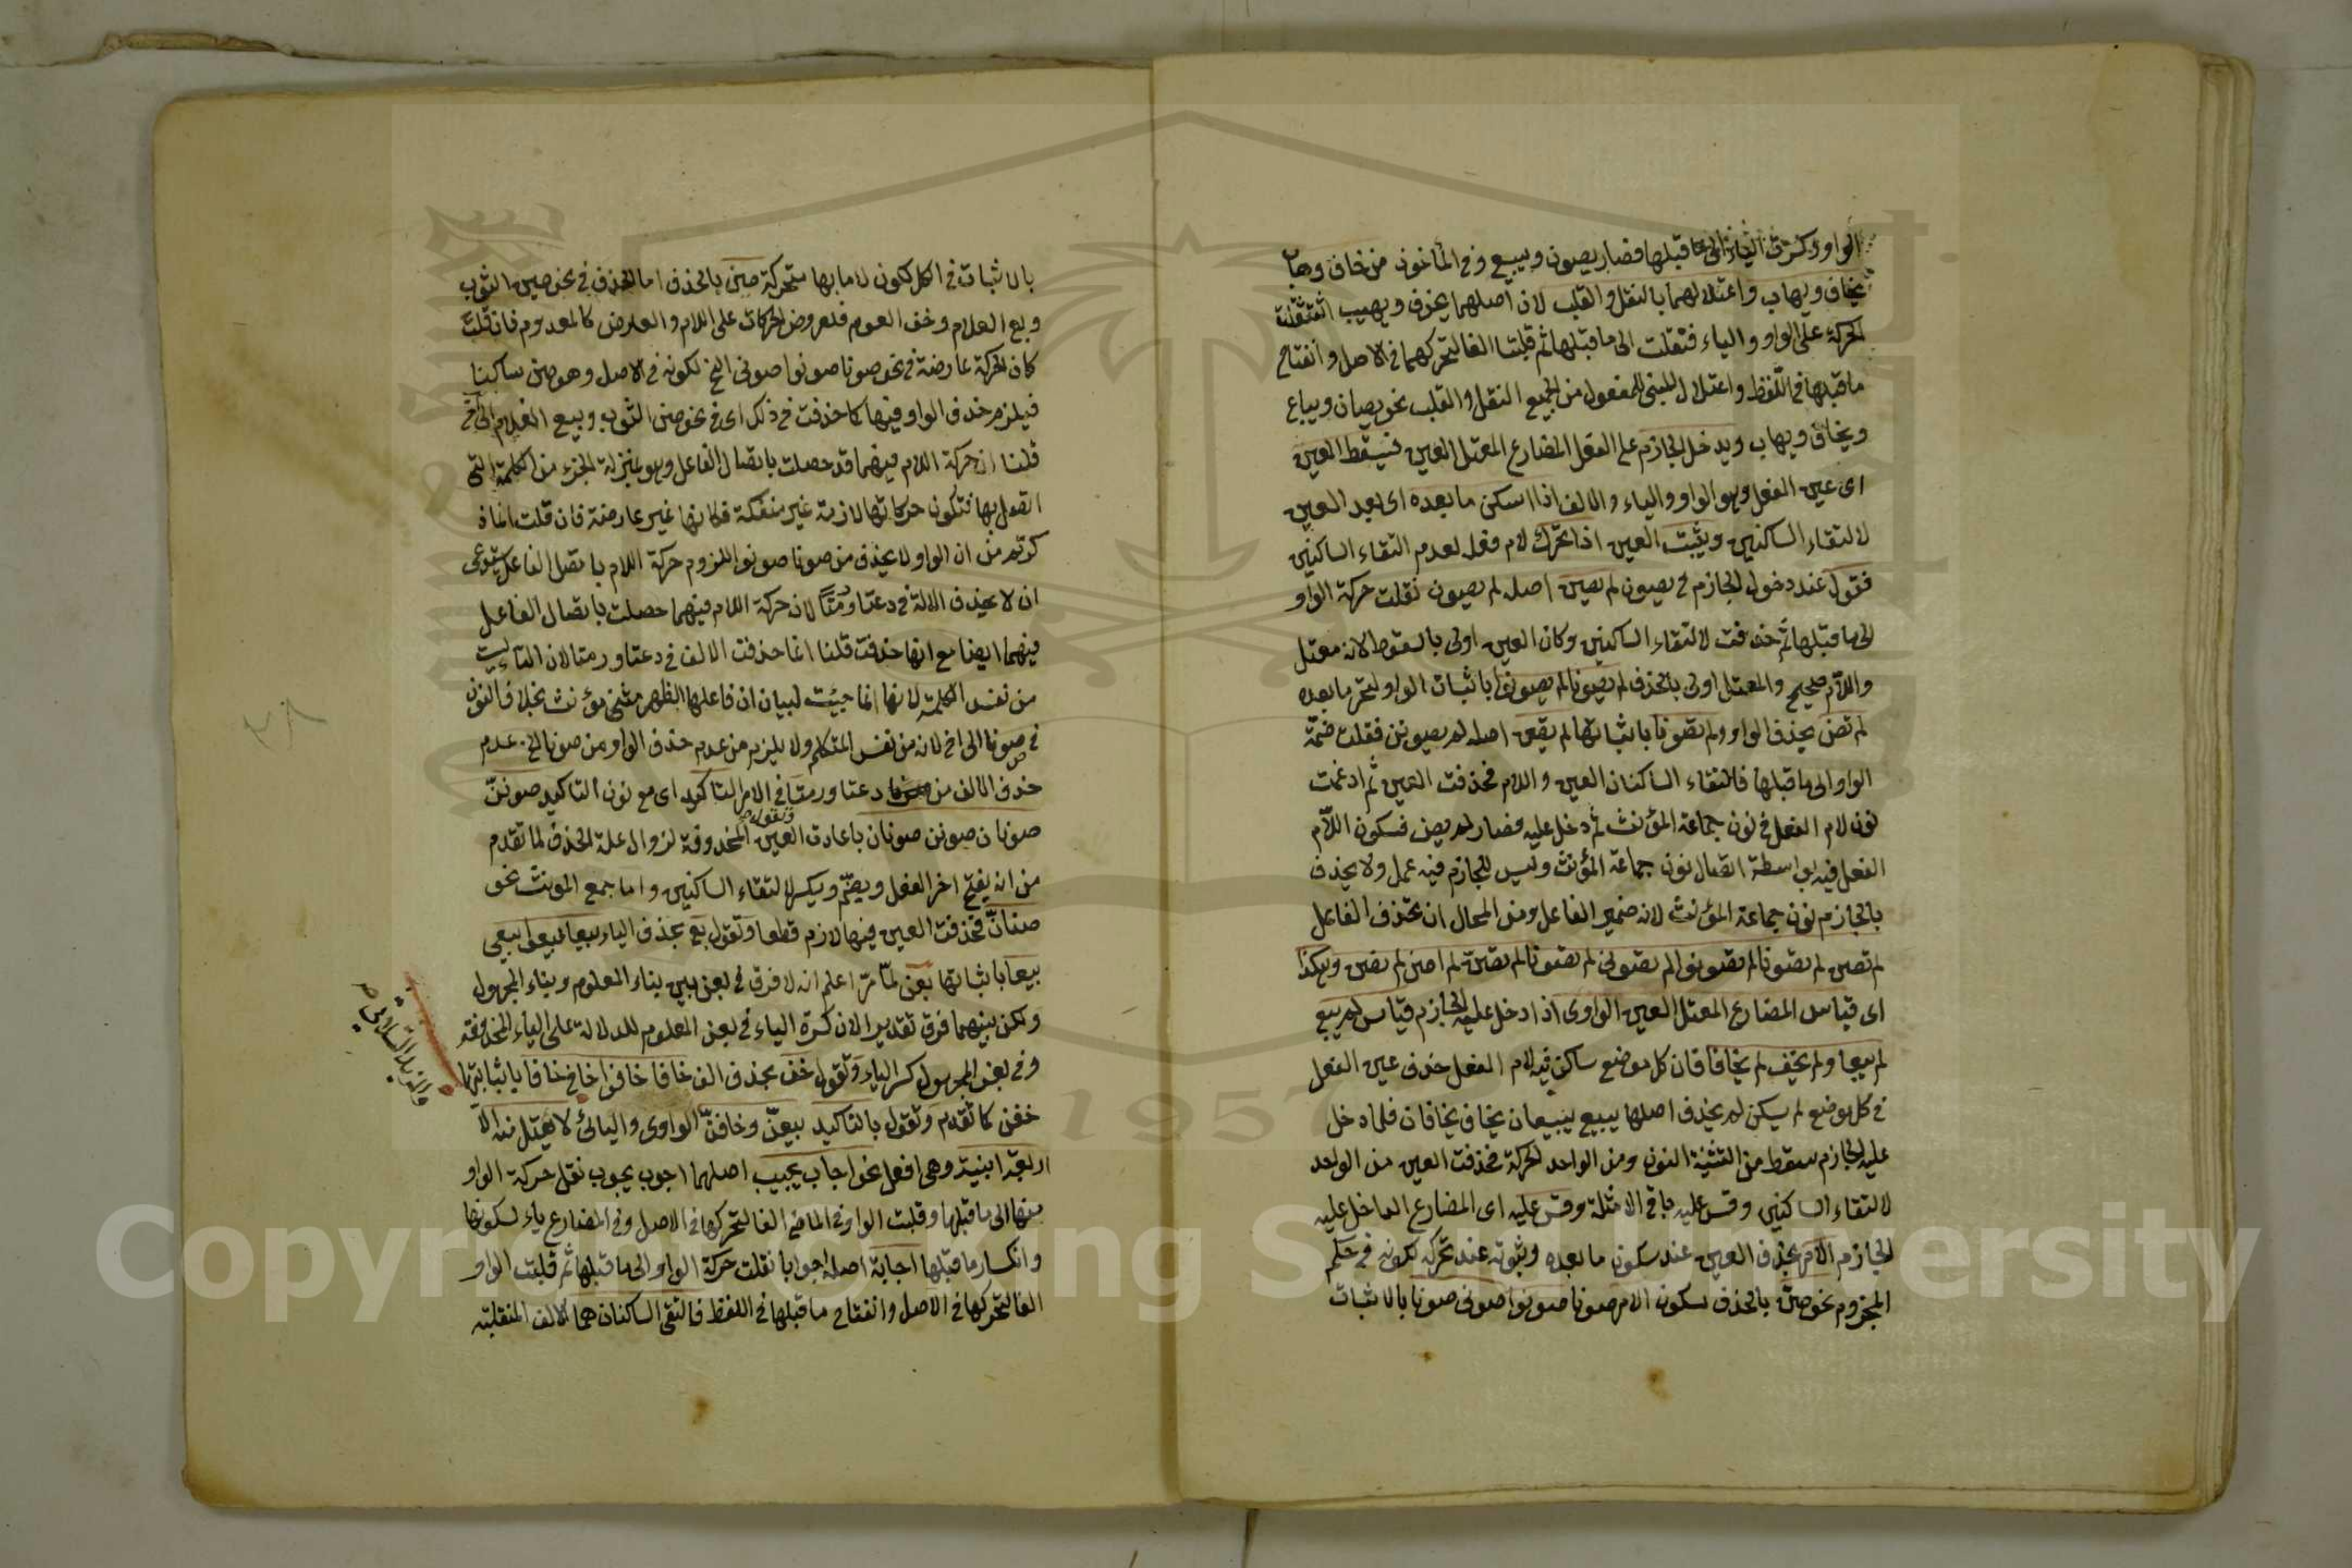 الواو وكسرة الياء الى ما قبلها فصار يصون ويبيع وفى المأخوذ من خاف وهاب
يخاف ويهاب واعتلالهما بالنقل والقلب لان اصلهما يخوف ويهيب استثقلت
الحركة على الواو والياء فنقلت الى ما قبلها ثم قلبتا الفا لتحركهما فى الاصل وانفتاح
ما قبلها فى اللفظ واعتلال المبنى للمفعول من الجميع النقل والقلب نحو يصان ويباع
ويخاف ويهاب ويدخل الجازم على الفعل المضارع المعتل العين فيسقط العين
اى عين الفعل وهو الواو والياء والالف اذا اسكن ما بعده اى بعد العين
لالتقاء الساكنين ويثبت العين اذا تحرك لام فعله لعدم التقاء الساكنين
فتقول عند دخول الجازم فى يصون لم يصن اصله لم يصون نقلت حركة الواو
الى ما قبلها ثم حذفت لالتقاء الساكنين وكان العين اولى بالسقوط لانه معتل
واللام صحيح والمعتل اولى بالحذف لم يصونا لم يصونوا باثبات الواو لتحرك ما بعده
لم تصن بحذف الواو ولم تصونا باثباتها لم يصن اصله لم يصونن فنقلت ضمة
الواو الى ما قبلها فالتقاء الساكنان العين واللام فحذفت العين ثم ادغمت
نون لام الفعل فى نون جماعة المؤنث ثم دخل عليه فصار لم يصن فسكون اللام
الفعل فيه بواسطة اتصال نون جماعة المؤنث وليس للجازم فيه عمل ولا يحذف
بالجازم نون جماعة المؤنث لانه ضمير الفاعل ومن المحال ان يحذف الفاعل
لم تصن لم تصونا لم تصونوا لم تصونى لم تصونا لم تصن لم اصن لم نصن وهكذا
اى قياس المضارع المعتل العين الواوى اذا دخل عليه الجازم قياس لم يبع
لم يبيعا ولم يخف لم يخافا فان كل موضع ساكن فيه لام الفعل حذف عين الفعل
فى كل موضع لم يسكن لم يحذف اصلها يبيع يبيعان يخاف يخافان فلما دخل
عليه الجازم سقط من التثنية النون ومن الواحد الحركة فحذفت العين من الواحد
لالتقاء الساكنين وقس عليه باقى الامثلة وقس عليه اى المضارع الداخل عليه
الجازم الامر بحذف العين عند سكون ما بعده وثبوته عند تحركه لكونه فى حكم
المجزوم نحو صن بالحذف لسكون اللام صونا صونوا صونى صونا بالاثبات
بالاثبات فى الكل لكون لاماتها متحركة صن بالحذف اما الحذف فى نحو صن الثوب
وبع الغلام وخف القوم فلعروض الحركات على اللام والعارض كالمعدوم فان قلت
كان الحركة عارضة فى نحو صونا صونوا صونى الخ لكونه فى الاصل وهو صن ساكنا
فيلزم حذف الواو فيها كما حذفت فى ذلك اى فى نحو صن الثوب وبيع الغلام الى آخر
قلنا ان حركة اللام فيهما قد حصلت باتصال الفاعل وهو بمنزلة الجزء من الكلمة التى
اتصل بها فتكون حركاتها لازمة غير منفكة فكانها غير عارضة فان قلت ما ذ
كرتم من ان الواو لا يحذف من صونا صونوا للزوم حركة اللام باتصل الفاعل يستدعى
ان لا يحذف الالف فى دعتا ورمتا لان حركة اللام فيهما حصلت باتصال الفاعل
فيهما ايضا مع انها حذفت قلنا انما حذفت الالف فى دعتا ورمتا لان التاء ليست
من نفس الكلمة لانها انما جيئت لبيان ان فاعلها الظهر مثنى مؤنث بخلاف النون
فى صونا الى اخ لانه من نفس المتكلم ولا يلزم من عدم حذف الواو من صونا الخ عدم
حذف الالف من دعتا ورمتا وتقول فى الامر التاكيد اى مع نون التاكيد صونن
صونان صونن صونان باعادة العين المحذوفة لزوال علة الحذف لما تقدم
من انه يفتح اخر الفعل ويضم ويكسر لالتقاء الساكنين واما جمع المونث نحو
صنان فحذفت العين فيها لازم قطعا وتقول بع بحذف الياء بيعا بيعوا بيعى
بيعا باثباتها بعن لما مر اعلم انه لا فرق فى بعن بين بناء المعلوم وبناء المجهول
ولكن بينهما فرق تقديرا لان كسرة الياء فى بعن المعلوم للدلالة على الياء المحذوفة
وفى بعن المجهول كسر الياء وتقول خف بحذف الف خافا خافوا خافى خافا باثباتها
خفن كما تقدم وتقول بالتاكيد بيعن وخافن الواوى واليائى لا يعتل منه الا
اربعة ابنية وهى افعل نحو اجاب يجيب اصلهما اجوب يجوب نقل حركة الواو
منها الى ما قبلها وقلبت الواو فى الماضى الفا لتحركها فى الاصل وفى المضارع ياء لسكونها
وانكسار ما قبلها اجابة اصله اجوابا نقلت حركة الواو الى ما قبلها ثم قلبت الواو
الفا لتحركها فى الاصل وانفتاح ما قبلها فى اللفظ فالتقى الساكنان هما الالف المنقلبة
ومزيد الثلاثى
٢٨
1957
Copyright © King Saud University